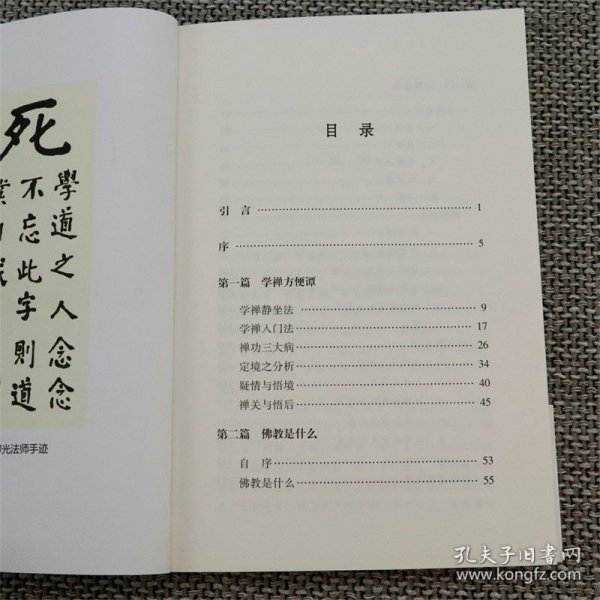 死
學道之人念念
不忘此字則道
光法师手迹
目 录
引 言 1
序 5
第一篇 学禅方便谭
学禅静坐法 9
学禅入门法 17
禅功三大病 26
定境之分析 34
疑情与悟境 40
禅关与悟后 45
第二篇 佛教是什么
自 序 53
佛教是什么 55
孔夫子旧书网
www.kongfz.com